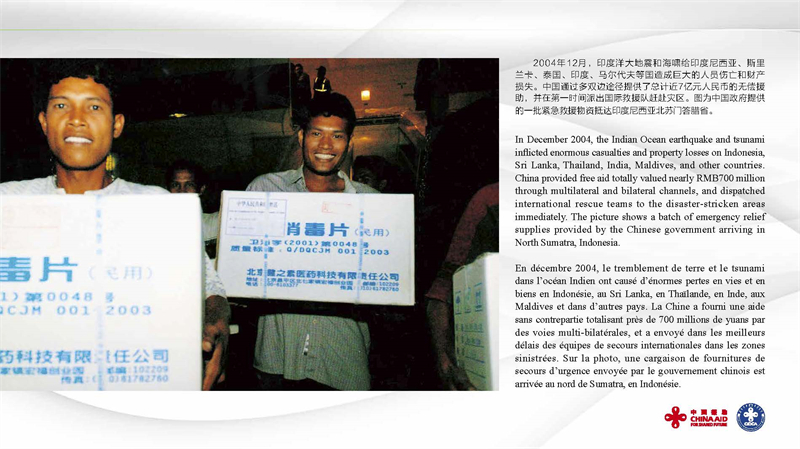 2004年12月，印度洋大地震和海啸给印度尼西亚、斯里
兰卡、泰国、印度、马尔代夫等国造成巨大的人员伤亡和财产
损失。中国通过多双边途径提供了总计近7亿元人民币的无偿援
助，并在第一时间派出国际救援队赶赴灾区。图为中国政府提供
的一批紧急救援物资抵达印度尼西亚北苏门答腊省。
In December 2004, the Indian Ocean earthquake and tsunami
inflicted enormous casualties and property losses on Indonesia,
Sri Lanka, Thailand, India, Maldives, and other countries.
China provided free aid totally valued nearly RMB700 million
through multilateral and bilateral channels, and dispatched
international rescue teams to the disaster-stricken areas
immediately. The picture shows a batch of emergency relief
supplies provided by the Chinese government arriving in
North Sumatra, Indonesia.
En décembre 2004, le tremblement de terre et le tsunami
dans l'océan Indien ont causé d'énormes pertes en vies et en
biens en Indonésie, au Sri Lanka, en Thaïlande, en Inde, aux
Maldives et dans d'autres pays. La Chine a fourni une aide
sans contrepartie totalisant près de 700 millions de yuans par
des voies multi-bilatérales, et a envoyé dans les meilleurs
délais des équipes de secours internationales dans les zones
sinistrées. Sur la photo, une cargaison de fournitures de
secours d'urgence envoyée par le gouvernement chinois est
arrivée au nord de Sumatra, en Indonésie.
消毒片（民用）
(2001)第0048
质量标准：Q/DQCJM 001-2003
医药科技有限责任公司
邮编：102209
传真：(0)81782760
毒片（民用）
)第0048号
QCJM 001-2003
药科技有限责任公司
家镇宏福创业园 邮编：102209
传真：(0)81782760
中国援助
CHINA AID
FOR SHARED FUTURE
CIDCA